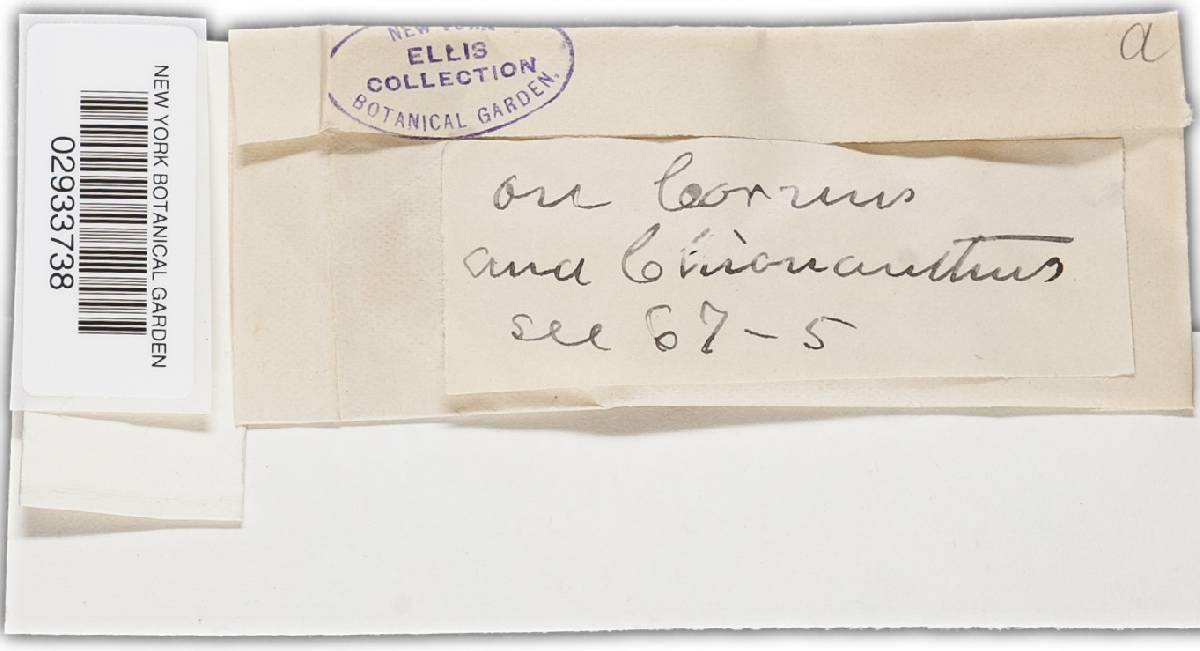 NEW YORK BOTANICAL GARDEN
02933738
NEW YORK
ELLIS
COLLECTION
BOTANICAL GARDEN.
a
on Cornus
and Chionanthus
see 67-5